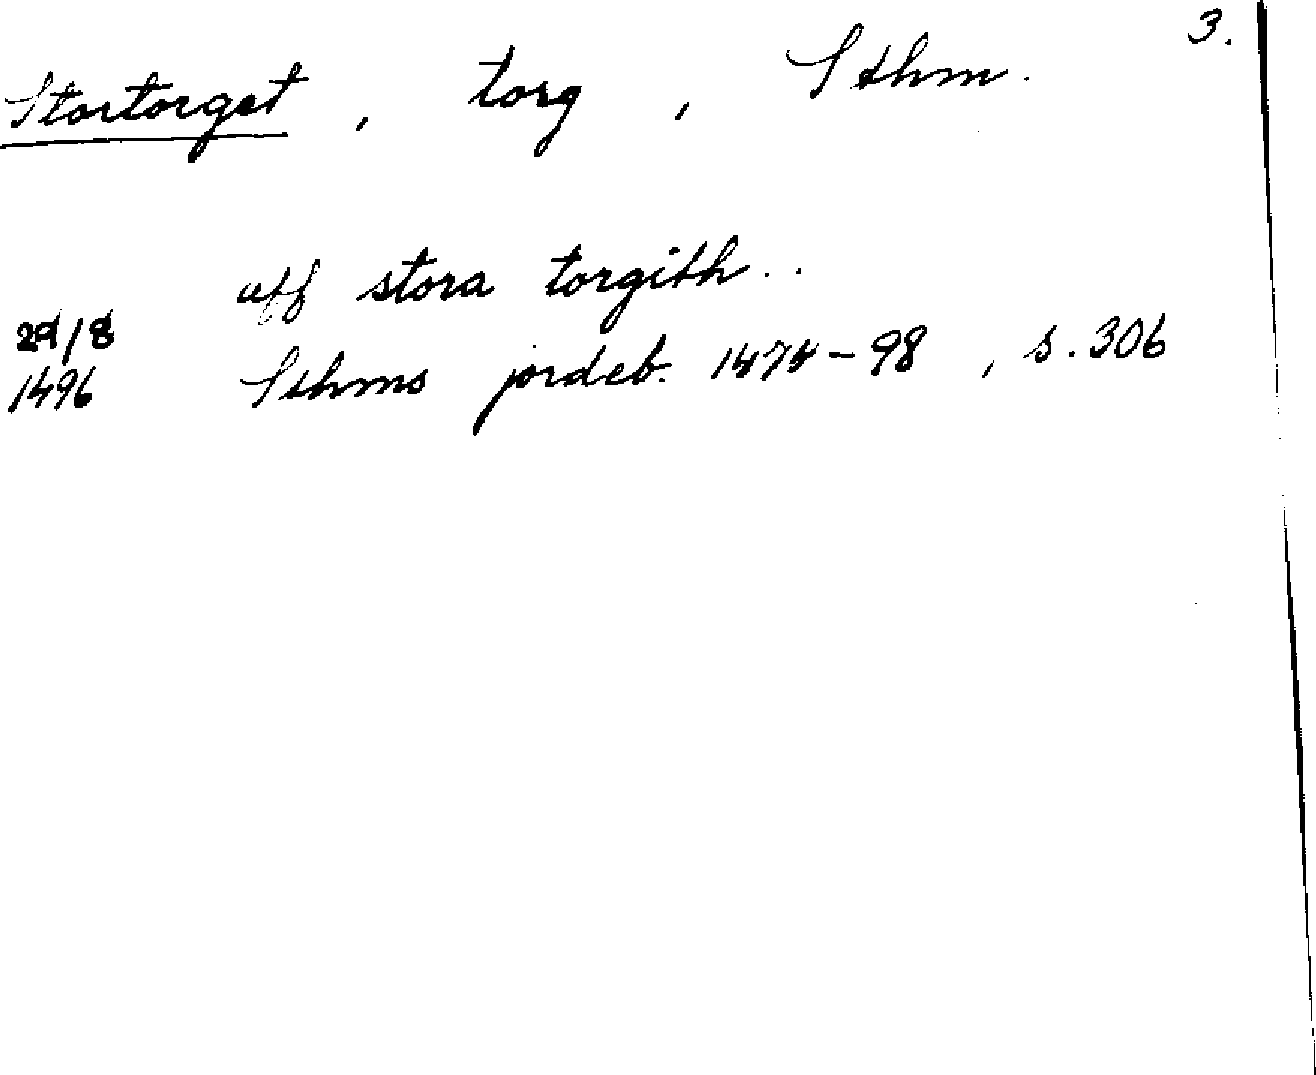 3.
Stortorget, torg, Sthm.
aff stora torgith..
29/8
1496 Sthms jordeb. 1474-98, s. 306